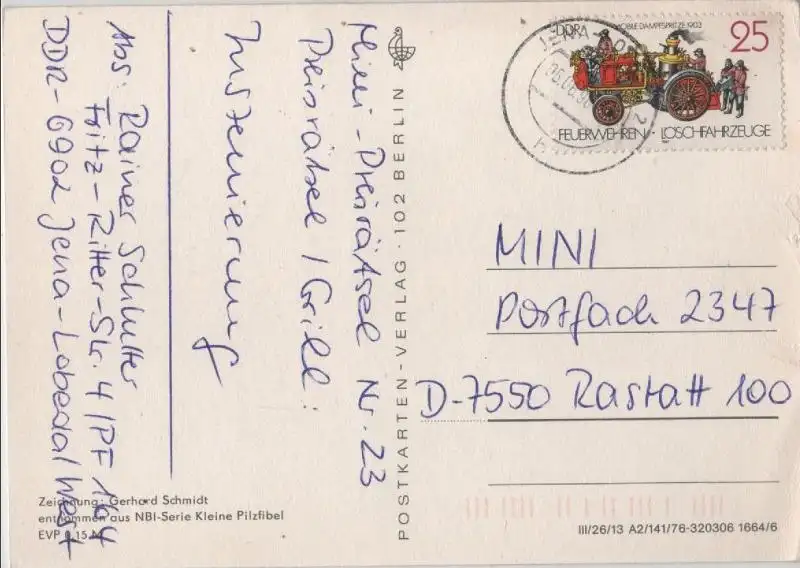 Mini-Preisrätsel Nr. 23
Preisrätsel / Grill:
Justierung
Abs: Rainer Schlutter
Fritz-Ritter-Str. 4/PF 164
DDR-6902 Jena-Lobeda/West
Zeichnung: Gerhard Schmidt
entnommen aus NBI-Serie Kleine Pilzfibel
EVP 0,15 M
POSTKARTEN-VERLAG · 102 BERLIN
DDR
MOBILE DAMPFSPRITZE 1903
25
FEUERWEHREN · LÖSCHFAHRZEUGE
JENA
MINI
Postfach 2347
D-7550 Rastatt 100
III/26/13 A2/141/76-320306 1664/6